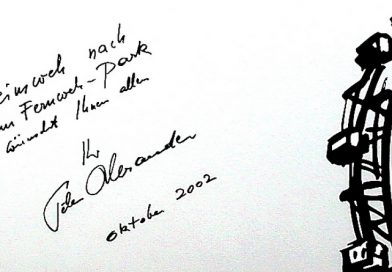 eimweh nach
m Fernweh-Park
wünscht Ihnen allen
Ihr
Peter Alexander
oktober 2002